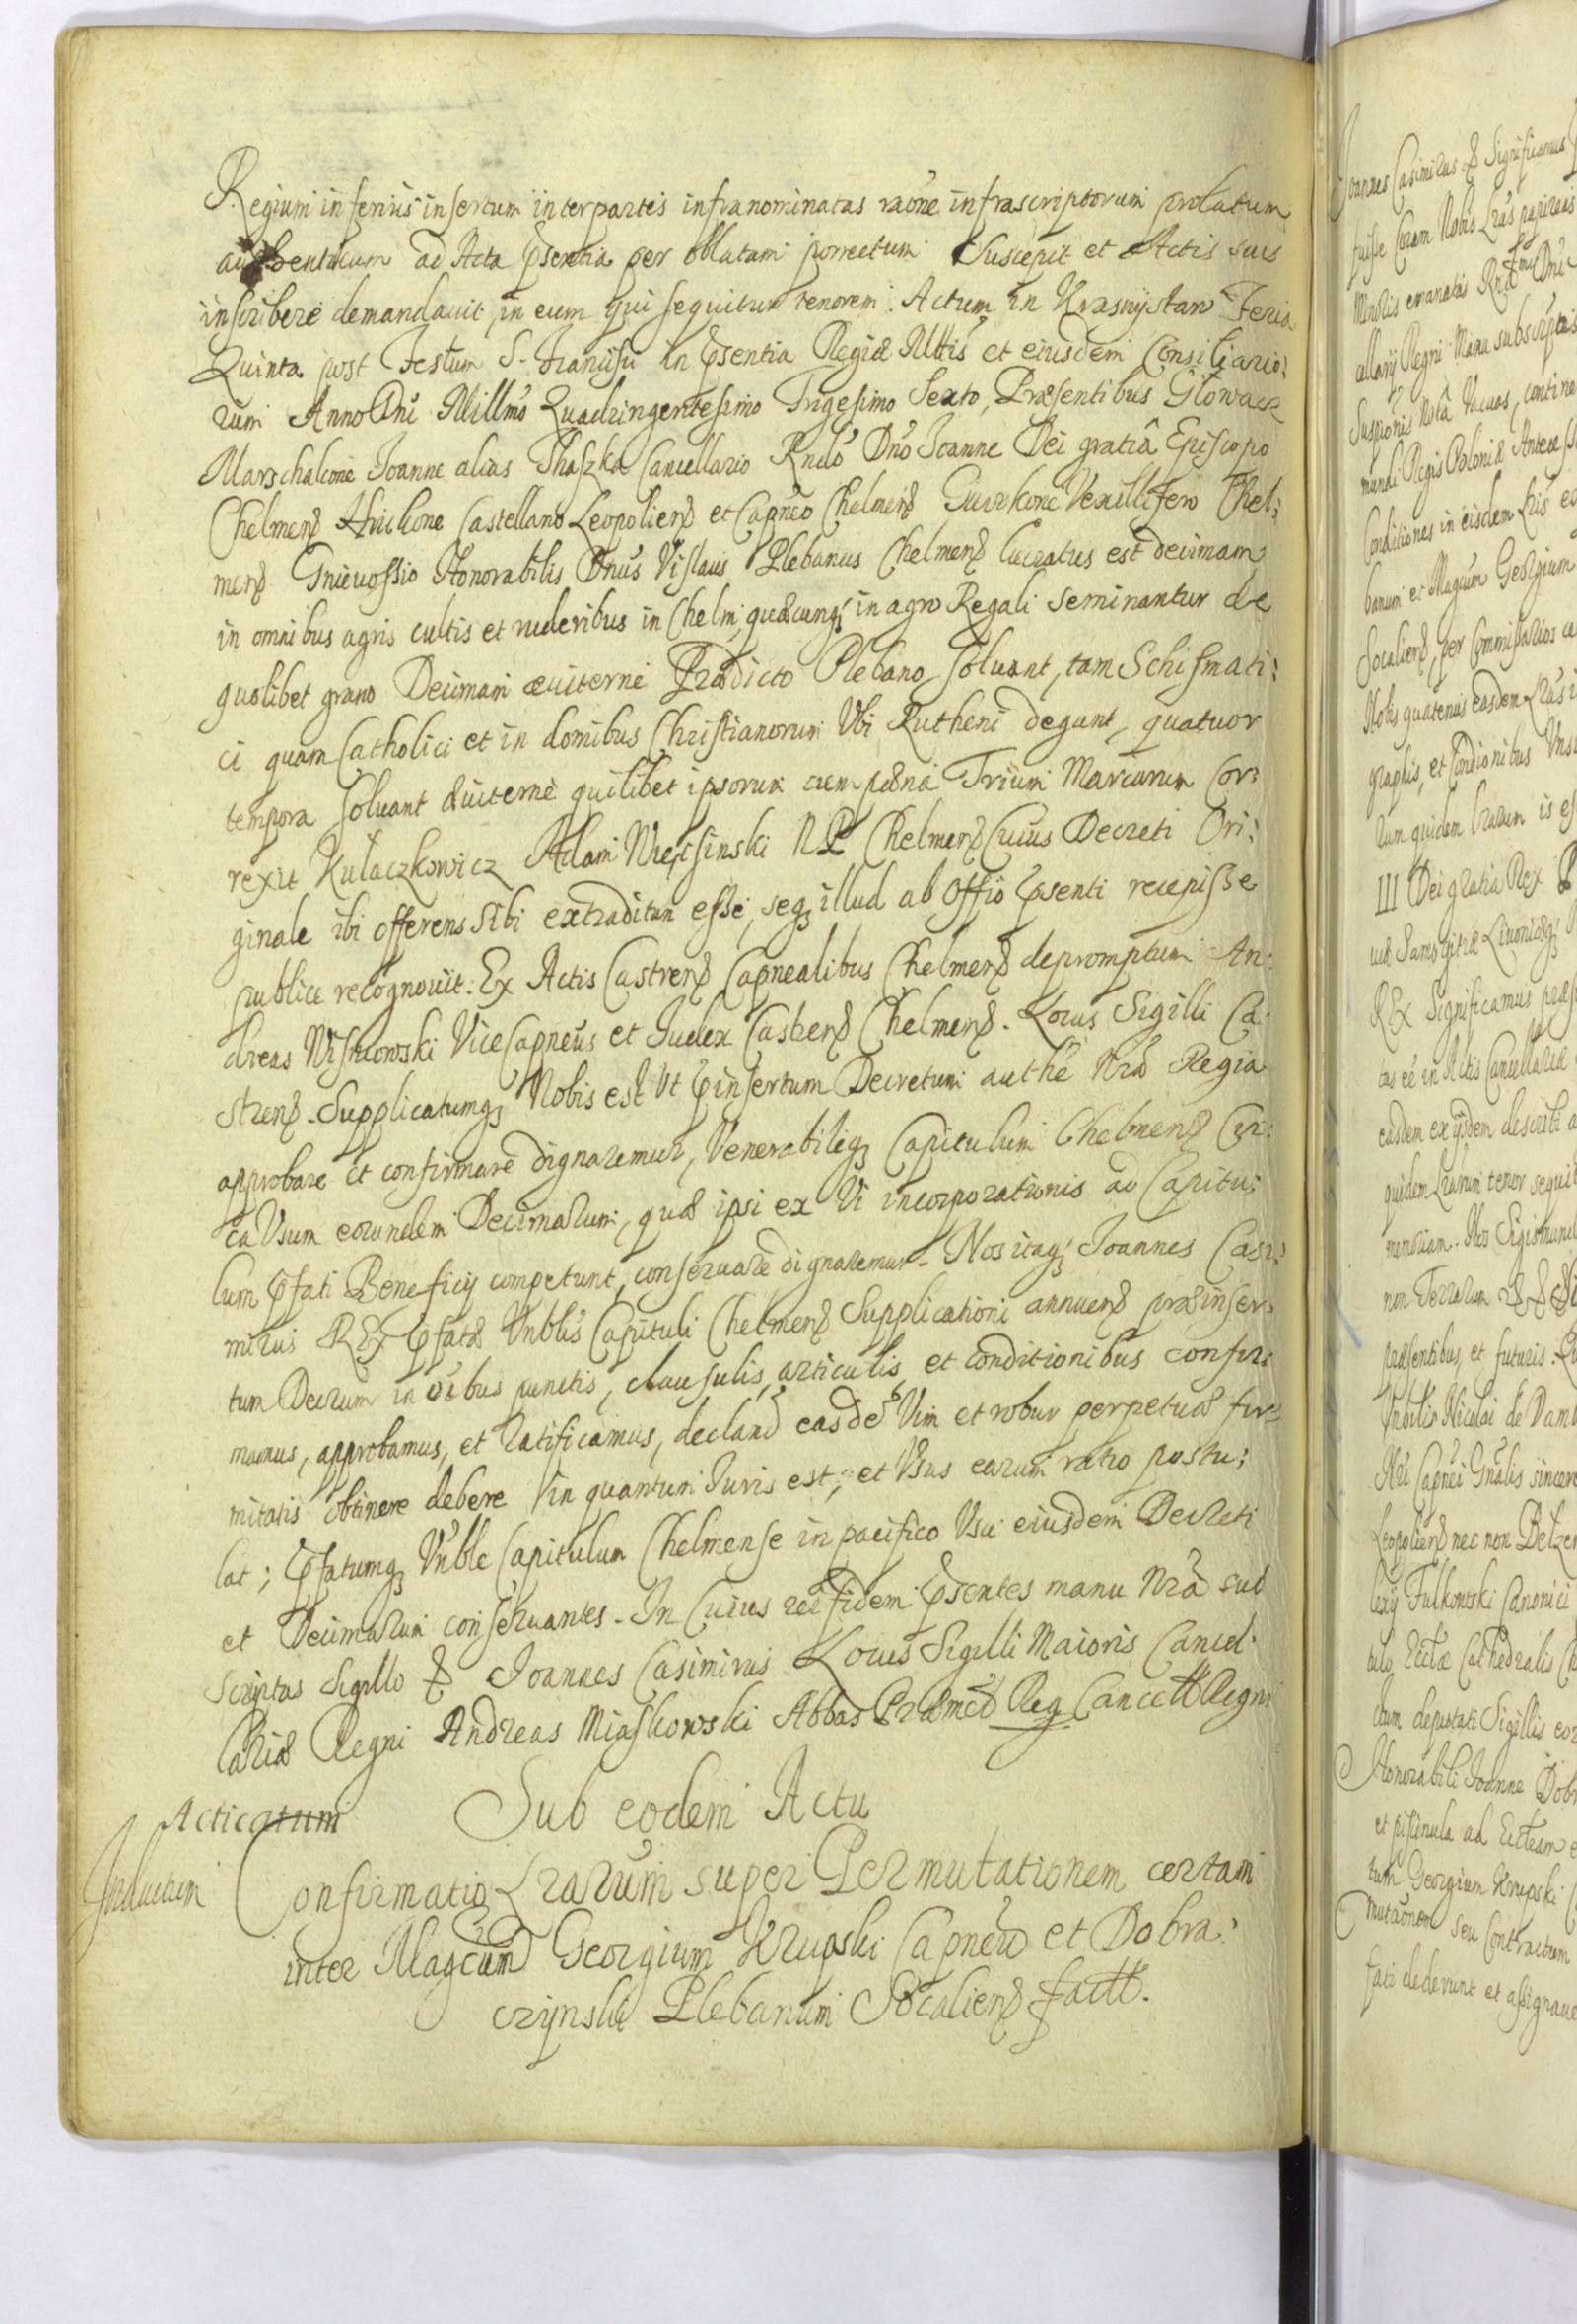 Regium inferius insertum inter partes infranominatas raōne infrascriptorum prolatum
authenticum ad Acta psentia per oblatam porrectum Suscepit et Actis suis
inscribere demandauit, in eum qui sequitur tenorem. Actum in Krasnystaw Feria
Quinta post Festum S. Francisci in psentia Regiæ Mttis et eiusdem Consiliario:
rum Anno Dni Millmo Quadringentesimo Trigesimo Sexto, Præsentibus Głowacz
Marschalcone Joanne alias Thaszka Cancellario Rndo Dno Joanne Dei gratiâ Episcopo
Chelmens Hrickone Castellano Leopoliens et Capneo Chelmens Vexillifero Chel:
mens Gnieuossio Honorabilis Dnus Vislaus Plebanus Chelmens lucratus est decimam
in omnibus agris cultis et ruderibus in Chelm, quæcunq; in agro Regali seminantur de
quolibet grano Decimam æuiterne Prædicto Plebano soluant, tam Schismati:
ci quam Catholici et in domibus Christianorum Vbi Rutheni degunt, quatuor
tempora soluant æuiterne quilibet ipsorum cum pœna Trium Marcarum Cor:
rexit Kułaczkowicz Adam NP Chelmens Cuius Decreti Ori:
ginale ibi offerens Sibi extraditum esse, seq; illud ab Offio psenti recepisse
publice recognouit. Ex Actis Castrens Capnealibus Chelmens depromptum An:
dreas Vice Capneus et Iudex Castrens Chelmens. Locus Sigilli Ca:
strens. Supplicatumq; Nobis est Vt pinsertum Decretum authe Nra Regia
approbare et confirmare dignaremur, Venerabileq; Capitulum Chelmens Cir:
ca Vsum eorundem Decimarum, quæ ipsi ex Vi incorporationis ad Capitu:
lum pfati Beneficij competunt, conseruare dignaremur. Nos itaq; Joannes Casi:
mirus REX pfatæ Vnblis Capituli Chelmens Supplicationi annuens præinser:
tum Decrum in oibus punctis, clausulis, articulis, et conditionibus confir:
mamus, approbamus, et ratificamus, decland easde Vim et robur perpetuæ fir:
mitatis obtinere debere in quantum Iuris est, et Vsus earum ratio postu:
lat; pfatumq; Vnble Capitulum Chelmense in pacifico Vsu eiusdem Decreti
et Decimarum conseruantes. In Cuius rei fidem psentes manu Nrâ sub
scriptas Sigillo & Joannes Casimirus Locus Sigilli Maioris Cancel:
lariæ Regni Andreas Miaskowski Abbas Præmet Reg Cancell Regni
Acticatum
Sub eodem Actu
Inductum
Confirmatio Lrarum super Permutationem certam
inter Magcum Georgium Krupski Capneu et Dobra:
crynski Plebanum Socaliens fact.
Joannes Casimirus & Significamus
fuisse Coram Nobis Lras papireas
Minoris emanatas Rndmi Dni
cellarij Regni Manu subscriptas
Suspionis Nota Vacuas, contine
mundi Regis Poloniæ
Conditiones in eisdem Lris
banum et Magcum Georgium
Socaliens, per Commissarios
Nobis quatenus easdem Lras
graphis, et Condionibus
rum quidem Lrarum is es
III Dei gratia Rex
uiæ Samogitiæ Liuoniæq;
REX Significamus præse
tas ee in Actis Cancellariæ
easdem ex ijsdem describi
quidem Lrarum tenor sequit
memoriam. Nos Sigismund
non Terrarum
præsentibus, et futuris.
Nobilis Nicolai de
Nri Capnei Gnalis sincere
Leopoliens nec non Belzen
Fulkowski Canonici
tulo Ecclæ Cathedralis
dum deputati Sigillis
Honorabili Joanne Dobr
et piscinula ad
tum Georgium Krupski
mutaonem seu Contractum
fati dederunt et assignaue